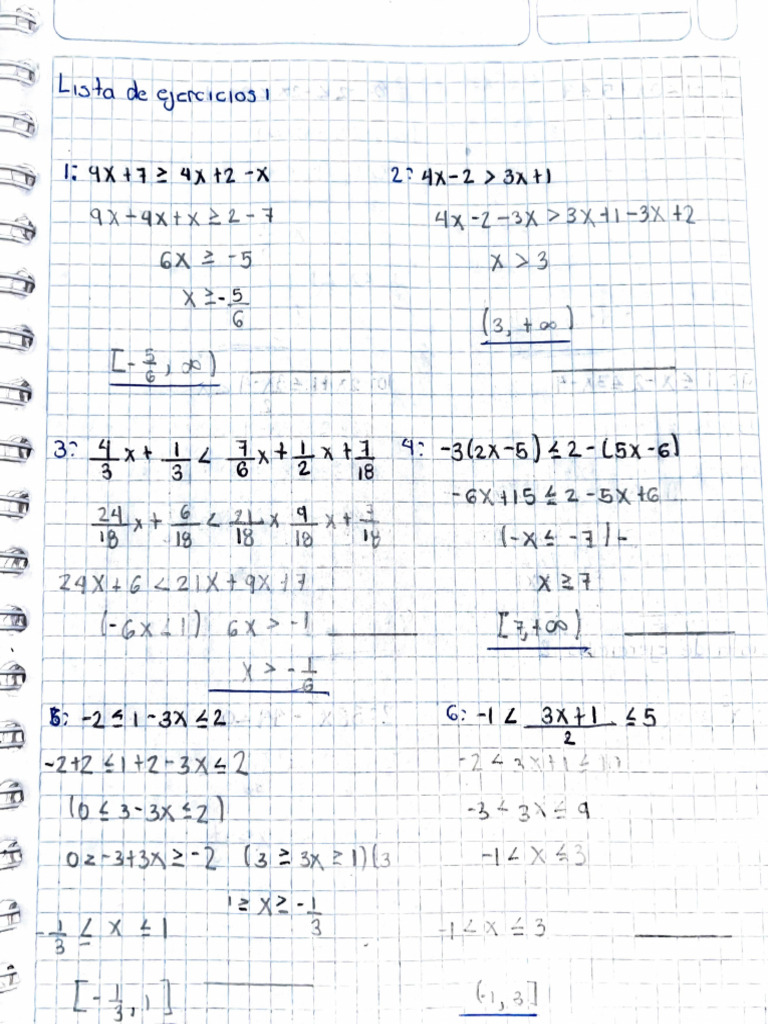 Lista de ejercicios 1
1: 9x+7 ≥ 4x+2-x
9x-4x+x ≥ 2-7
6x ≥ -5
x ≥ -5/6
[-5/6, ∞)
2: 4x-2 > 3x+1
4x-2-3x > 3x+1-3x+2
x > 3
(3, +∞)
3: 4/3 x + 1/3 < 7/6 x + 1/2 x + 7/18
24/18 x + 6/18 < 21/18 x 9/18 x + 7/18
24x+6 < 21x+9x+7
(-6x<1) 6x > -1
x > -1/6
4: -3(2x-5) ≤ 2-(5x-6)
-6x+15 ≤ 2-5x+6
(-x ≤ -7)-
x ≥ 7
[7, +∞)
5: -2 ≤ 1-3x ≤ 2
-2+2 ≤ 1+2-3x ≤ 2
(0 ≤ 3-3x ≤ 2)
0 ≥ -3+3x ≥ -2 (3 ≥ 3x ≥ 1)(3
1 ≥ x ≥ -1/3
-1/3 ≤ x ≤ 1
[-1/3, 1]
6: -1 < 3x+1/2 ≤ 5
-2 < 3x+1 ≤ 10
-3 < 3x ≤ 9
-1 < x ≤ 3
-1 < x ≤ 3
(-1, 3]